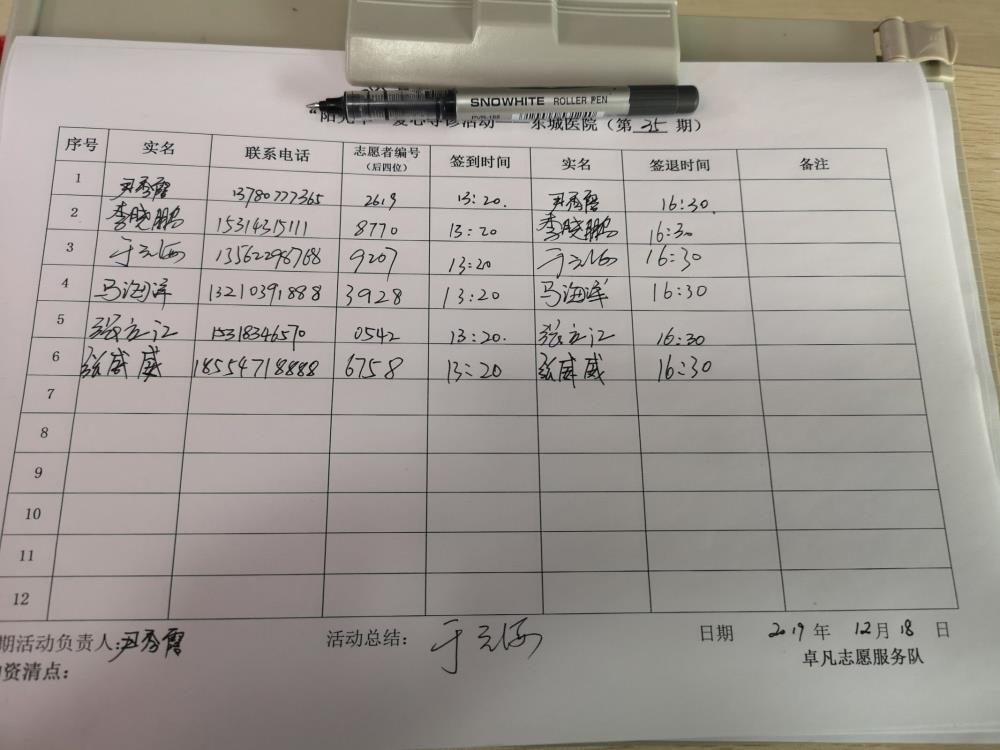 SNOWHITE ROLLER PEN
东城医院（第 35 期）
序号 实名 联系电话 志愿者编号（后四位） 签到时间 实名 签退时间 备注
1 尹秀霞 13780777365 2619 13:20. 尹秀霞 16:30.
2 李晓鹏 15314315111 8770 13:20 李晓鹏 16:30
3 于元海 13562296768 9207 13:20 于元海 16:30
4 马海洋 13210391888 3928 13:20 马海洋 16:30
5 张立江 15318346570 0542 13:20. 张立江 16:30
6 张威威 18554718888 6758 13:20 张威威 16:30
7
8
9
10
11
12
期活动负责人：尹秀霞 活动总结： 于元海 日期 2019 年 12 月 18 日
资清点： 卓凡志愿服务队